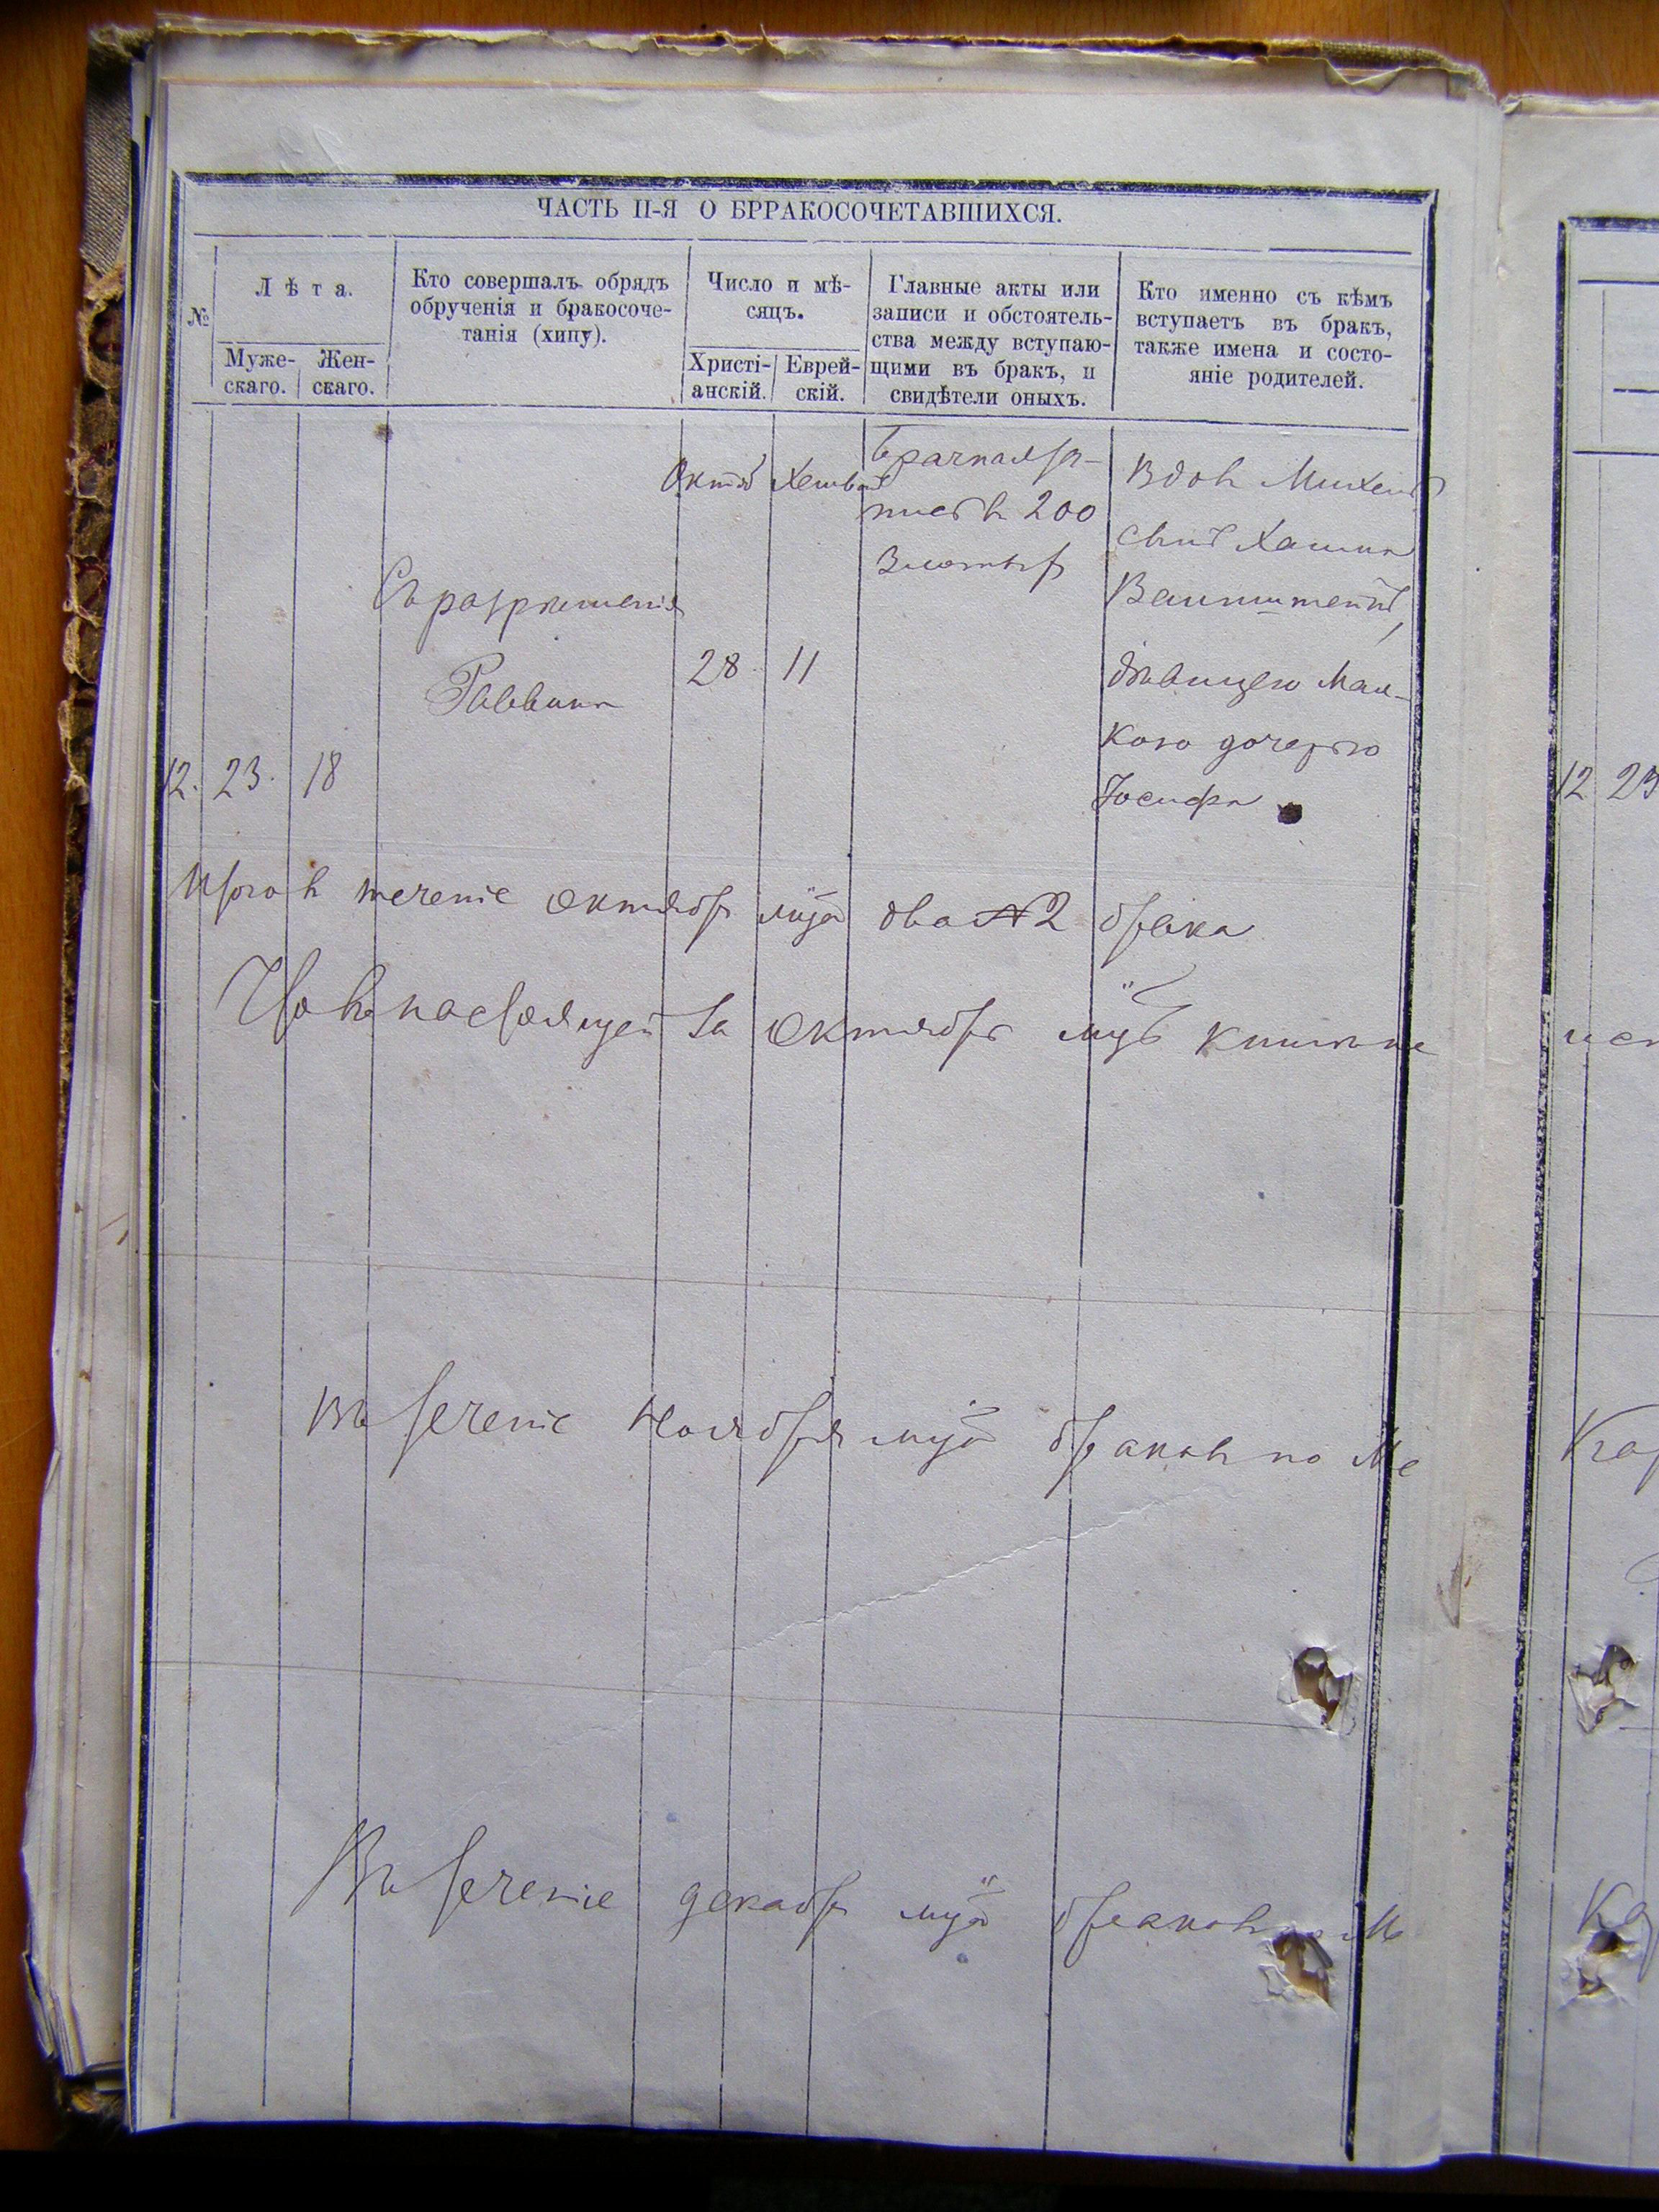 ЧАСТЬ II-Я О БРРАКОСОЧЕТАВШИХСЯ.
№
Лѣта.
Муже-
скаго.
Жен-
скаго.
Кто совершалъ обрядъ
обрученія и бракосоче-
танія (хипу).
Число и мѣ-
сяцъ.
Христі-
анскій.
Еврей-
скій.
Главные акты или
записи и обстоятель-
ства между вступаю-
щими въ бракъ, и
свидѣтели оныхъ.
Кто именно съ кѣмъ
вступаетъ въ бракъ,
также имена и состо-
яніе родителей.
12. 23. 18
Съ разрѣшенія
Раввина
Октяб
28
Хешван
11
Брачная за-
пись въ 200
Злотыхъ
Вдов
сынъ Хаима
дѣвицею
дочерью
Іосифа
Итого в теченіе октября мца два № 2 брака
Что въ настоящей за октябрь мцъ книги не
Въ теченіе Ноября мца браковъ по Ме
Въ теченіе декабр мца браковъ по М
12 23